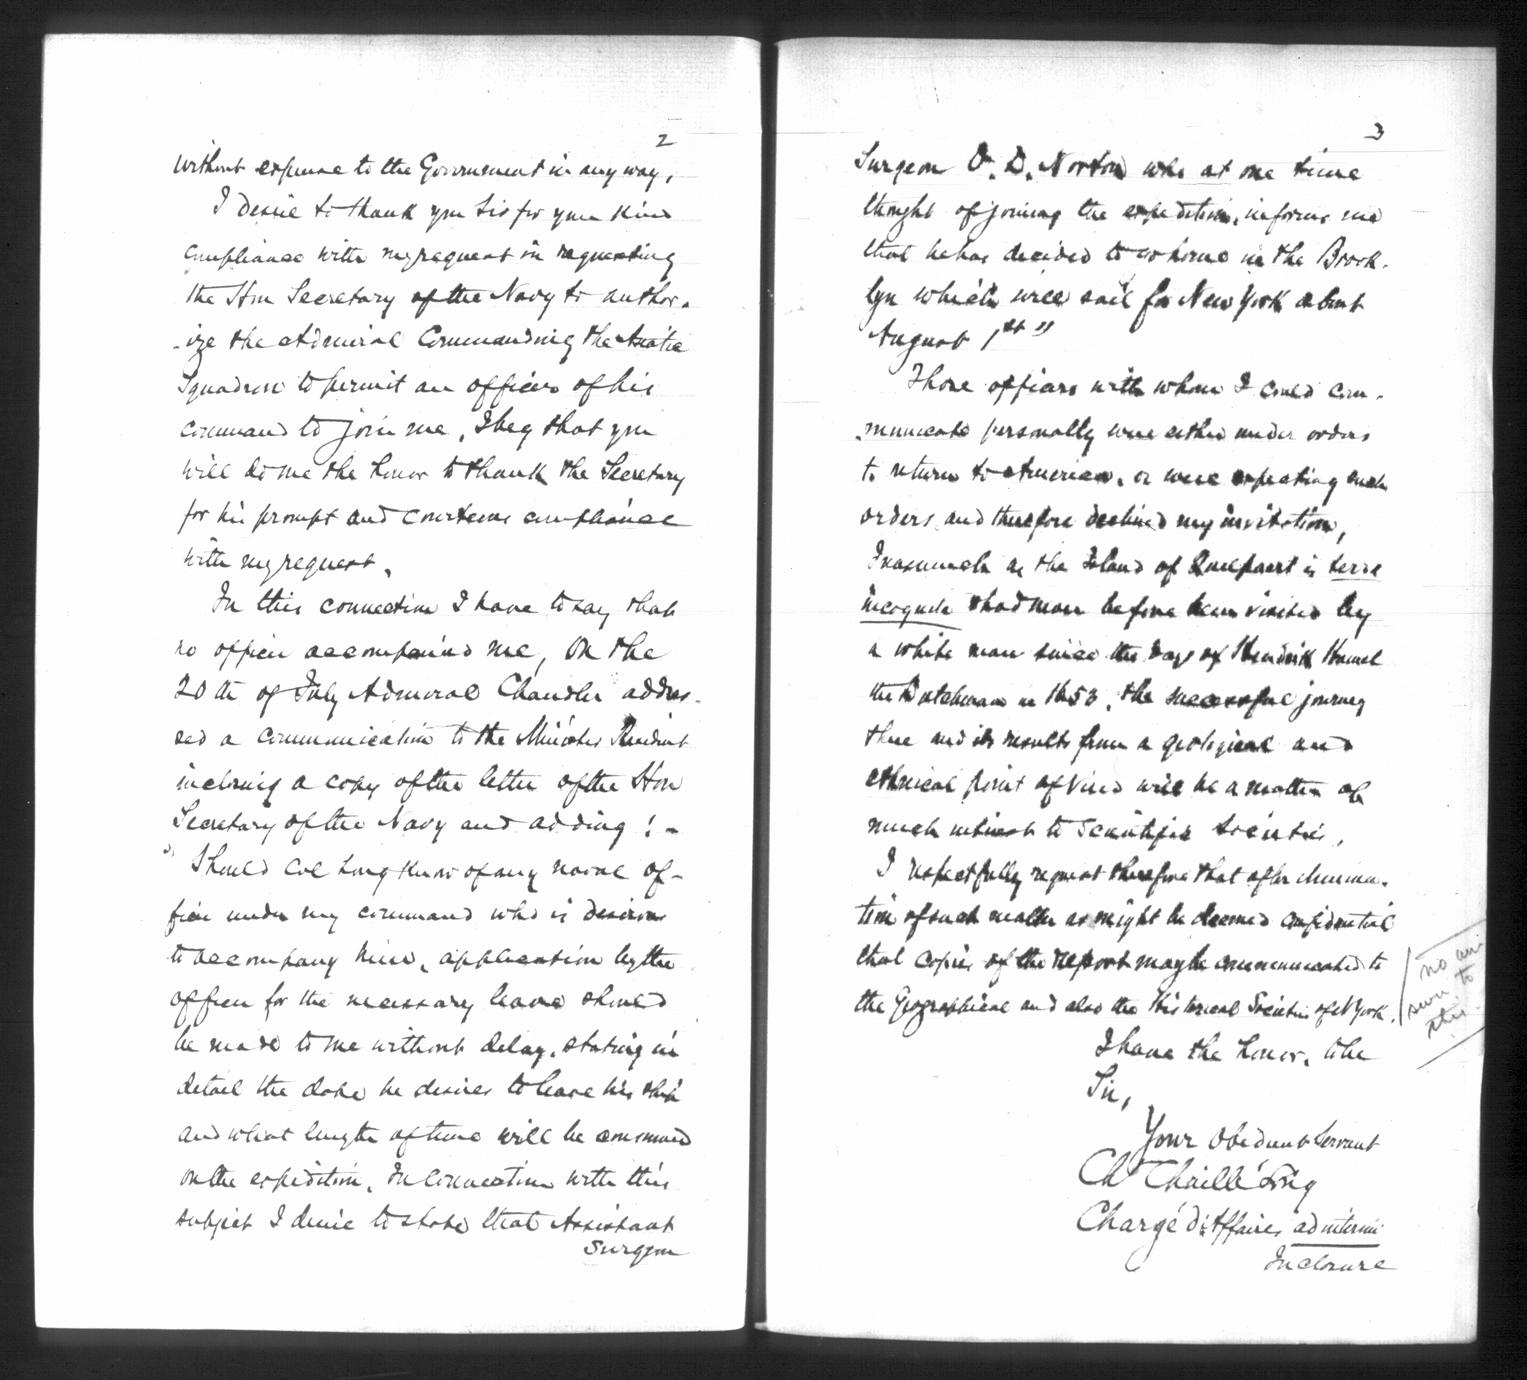 2
without expense to the Government in any way.
I desire to thank you Sir for your kind
compliance with my request in requesting
the Hon Secretary of the Navy to author-
-ize the Admiral Commanding the Asiatic
Squadron to permit an officer of his
command to join me, I beg that you
will do me the honor to thank the Secretary
for his prompt and courteous compliance
with my request.
In this connection I have to say that
no officer accompanied me, On the
20th of July Admiral Chandler addres-
sed a communication to the Minister Resident
inclosing a copy of the letter of the Hon
Secretary of the Navy and adding: -
"Should Col Long know of any naval of-
ficer under my command who is desirous
to accompany him, application by the
officer for the necessary leave should
be made to me without delay, stating in
detail the date he desires to leave his ship
and what length of time will be consumed
on the expedition. In connection with this
subject I desire to state that Assistant
Surgeon
3
Surgeon O. D. Norton who at one time
thought of joining the expedition, informs me
that he has decided to go home in the Brook-
lyn which will sail for New York about
August 1st"
Those officers with whom I could com-
-municate personally were either under orders
to return to America, or were expecting such
orders, and therefore declined my invitation,
Inasmuch as the Island of Quelpaert is terra
incognita & had never before been visited by
a white man since the days of Hendrik Hamel
the Dutchman in 1653, the successful journey
there and its results from a geological and
ethnical point of view will be a matter of
much interest to scientific societies,
I respectfully request therefore that after
tion of such matter as might be deemed confidential
that copies of the report may be communicated to
the Geographical and also the Historical Societies of N York.
no an
swer to
this.
I have the honor, to be
Sir,
Your Obedient Servant
Ch Chaillé Long
Chargé d'Affaires ad interim
Inclosure